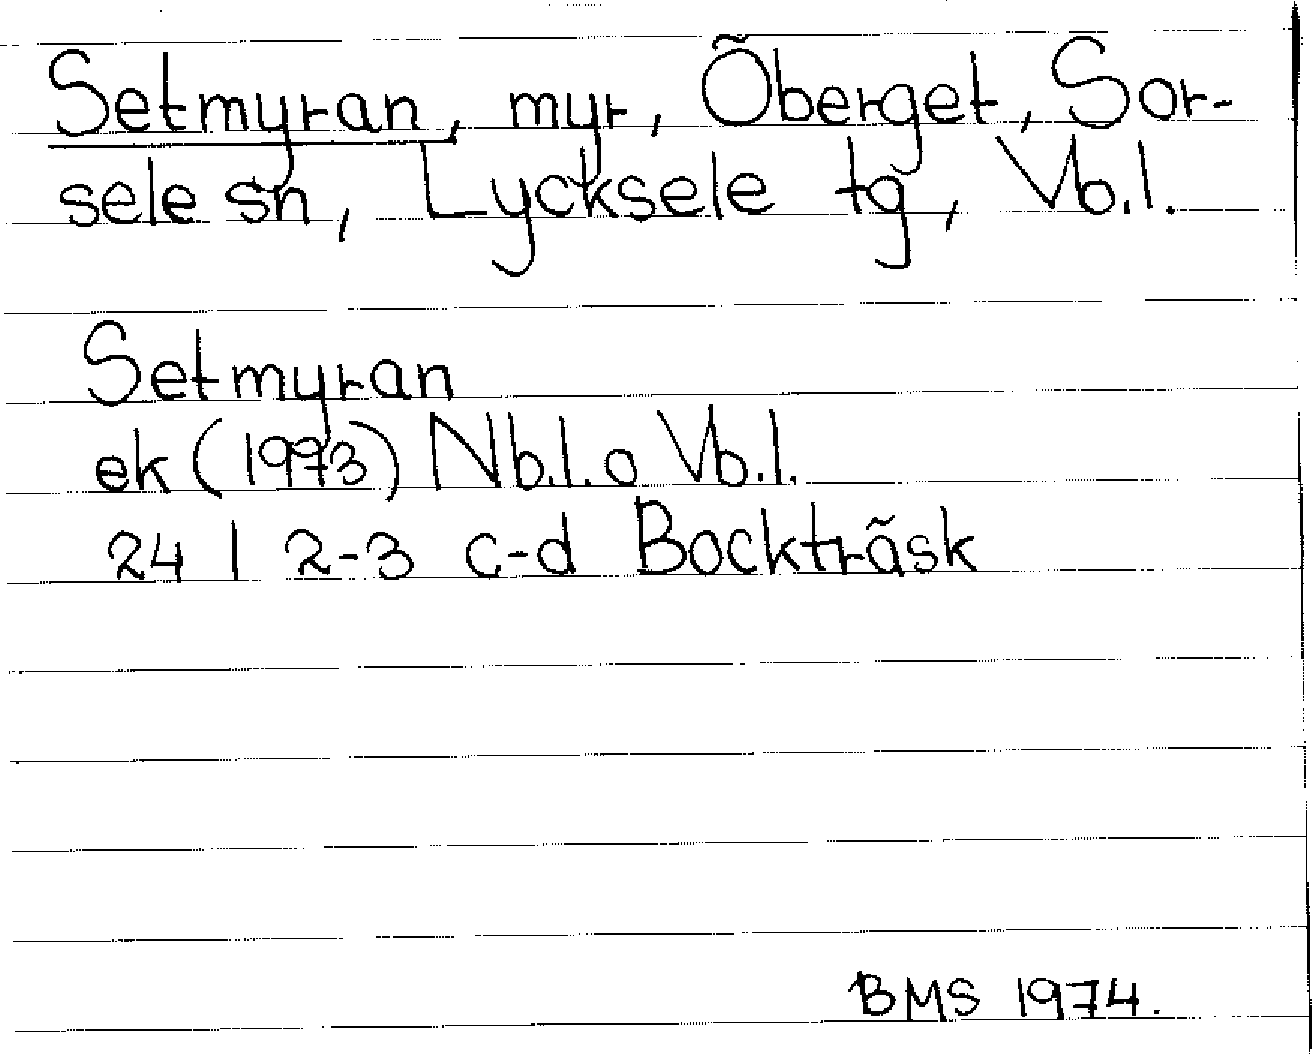 Setmyran, myr, Öberget, Sor-
sele sn, Lycksele tg, Vb.l.
Setmyran
ek (1973) Nb.l. o Vb.l.
24 I 2-3 c-d Bockträsk
BMS 1974.